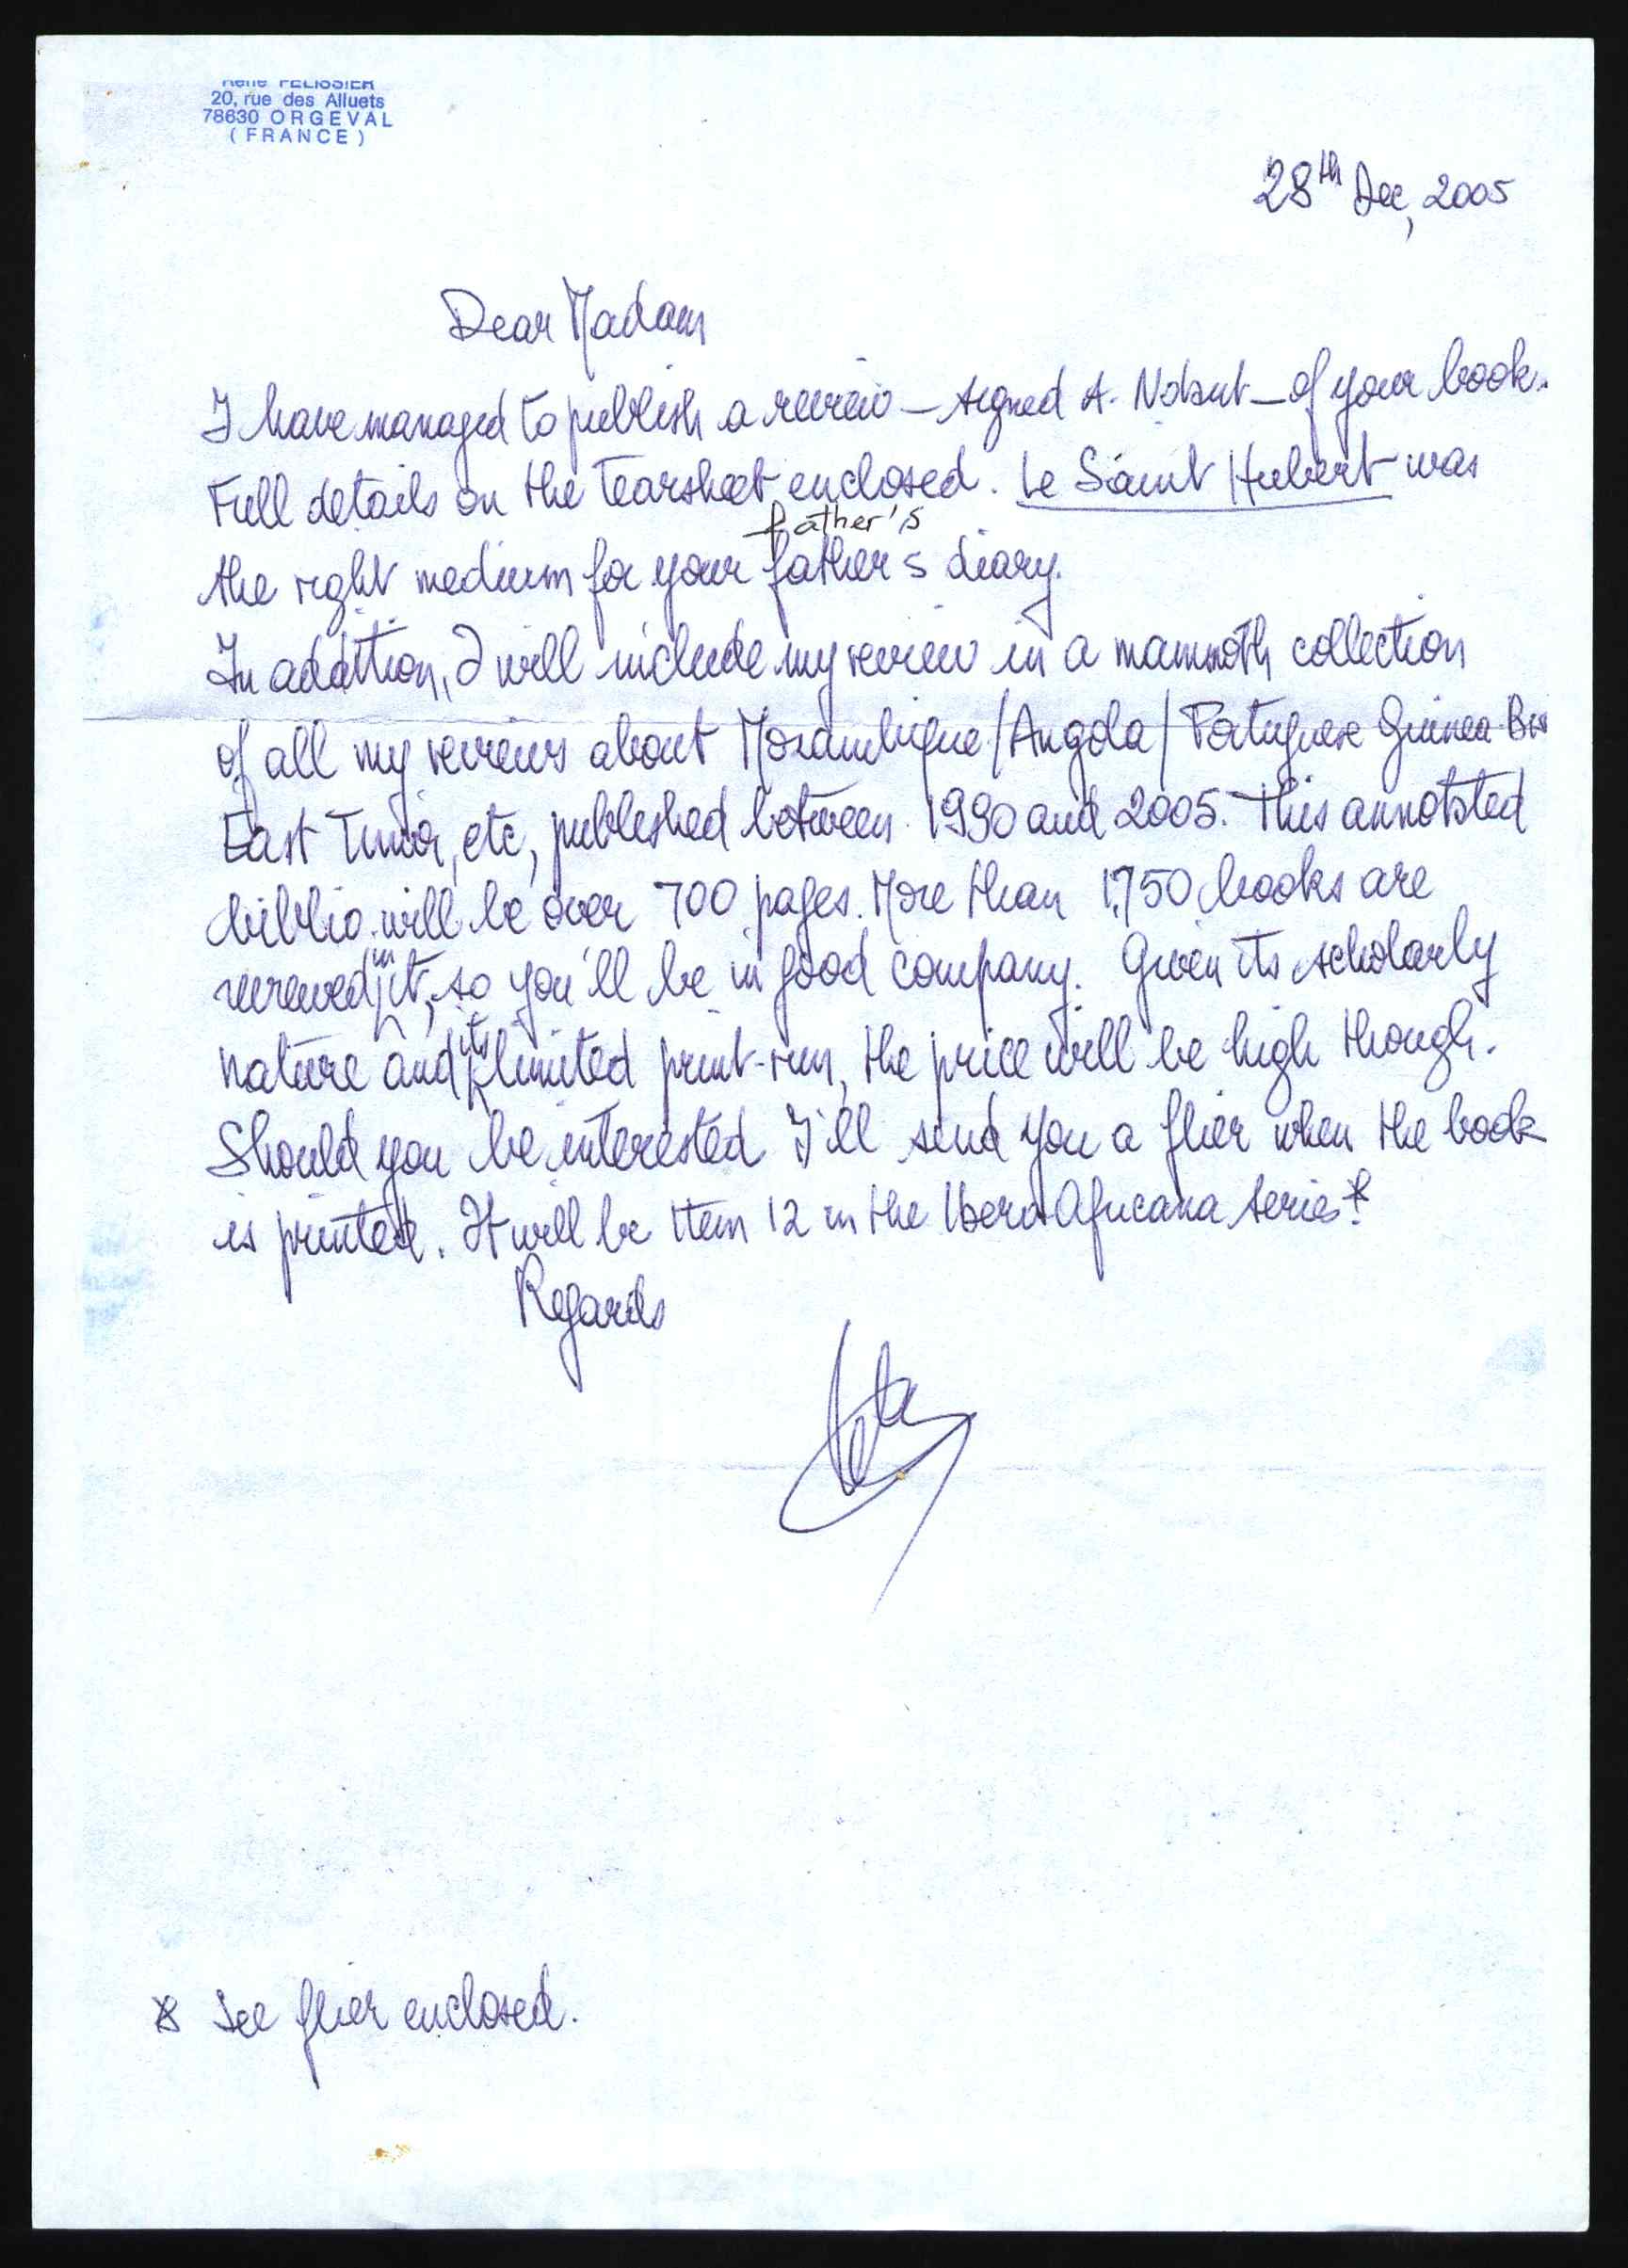 René PELISSIER
20, rue des Alluets
78630 ORGEVAL
(FRANCE)
28th Dec, 2005
Dear Madam
I have managed to publish a review – signed A. – of your book.
Full details on the tearsheet enclosed. Le Saint Hubert was
father's
the right medium for your father's diary.
In addition, I will include my review in a mammoth collection
of all my reviews about Mozambique/Angola/Portuguese Guinea-
East Timor, etc, published between 1990 and 2005. This annotated
biblio. will be over 700 pages. More than 1,750 books are
reviewed in it, so you'll be in good company. Given its scholarly
nature and its limited print-run, the price will be high though.
Should you be interested I'll send you a flier when the book
is printed. It will be Item 12 in the Ibero-Africana series.*
Regards
* See flier enclosed.